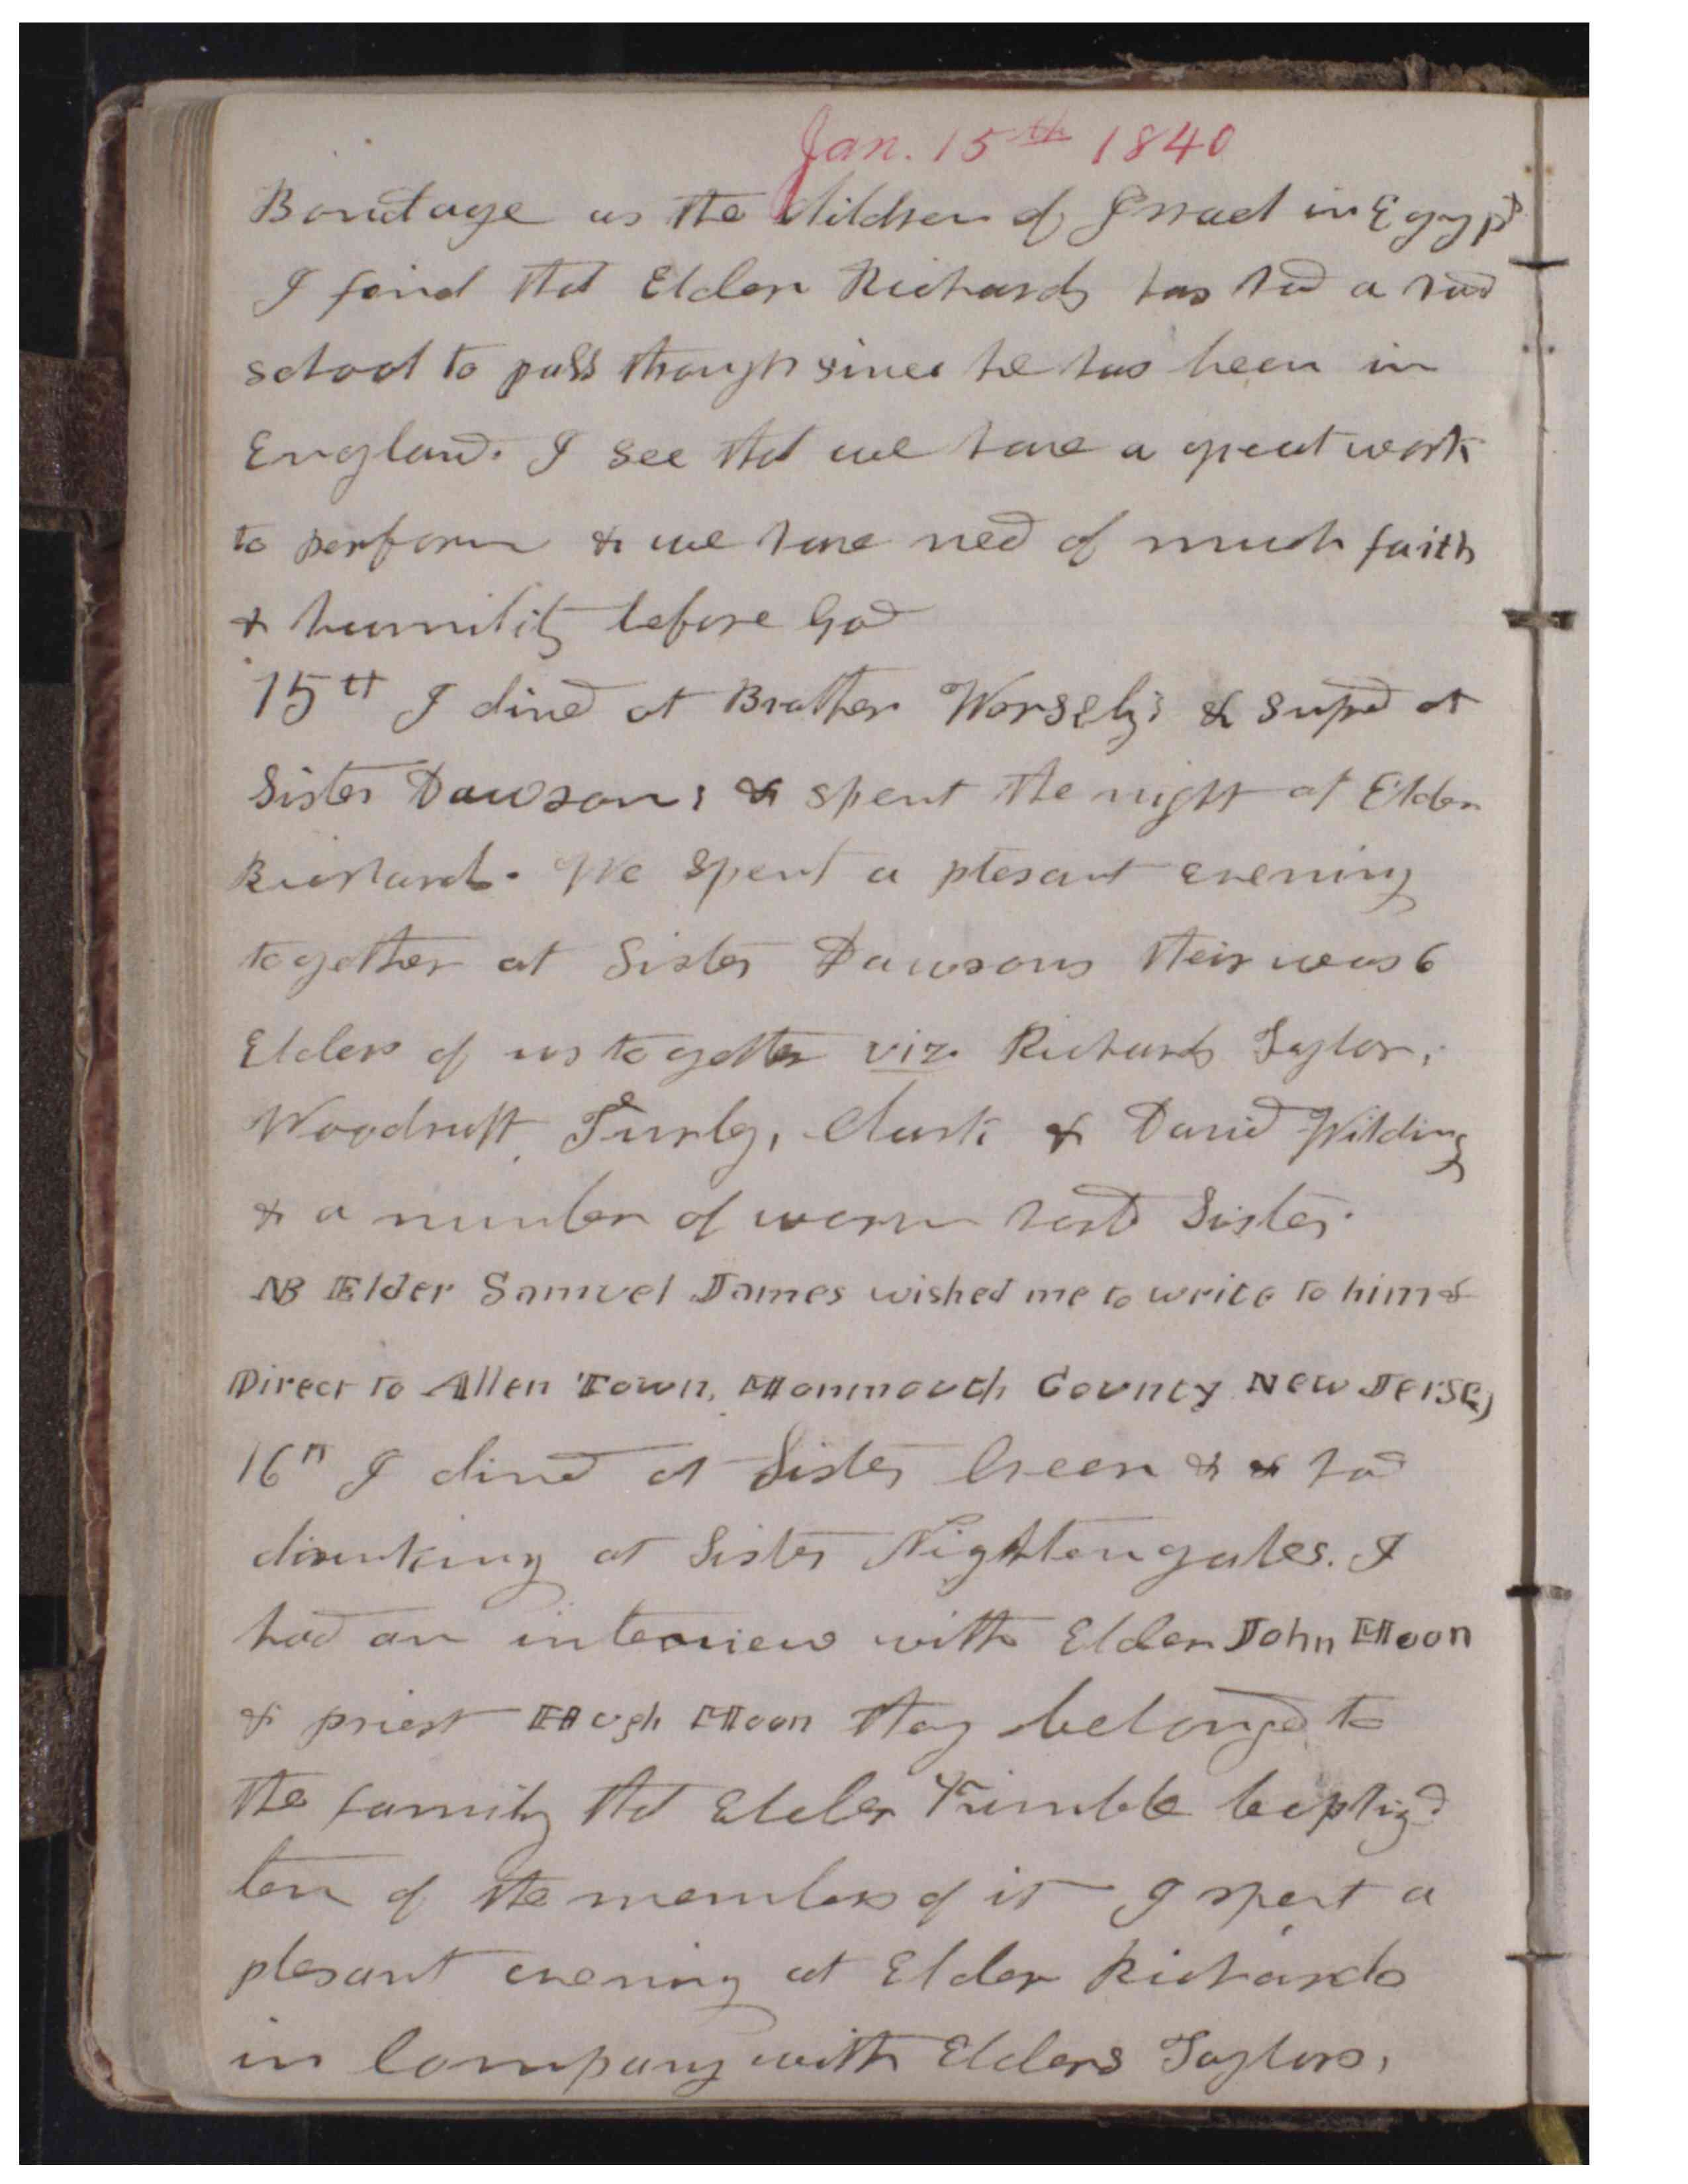 Jan. 15th 1840
Bondage as the Children of Israel in Egypt
I find that Elder Richards has had a hard
school to pass through since he has been in
England. I see that we have a great work
to perform & we have need of much faith
& humility before God
15th I dined at Brother Worsely's & suped at
Sister Dawsons & spent the night at Elder
Richards. We spent a plesant evening
together at Sister Dawsons their was 6
Elders of us together viz. Richards Taylor,
Woodruff, Turly, Clark & David Wilding
& a number of warm hearted Sisters.
NB Elder Samuel James wished me to write to him &
Direct to Allen Town, Monmouth County New Jersey
16th I dined at Sister Green & & had
drinking at Sister Nightengales. I
had an interview with Elder John Moon
& priest Hugh Moon they belonged to
the family that Elder Kimble baptized
ten of the members of it I spent a
plesant evening at Elder Richards
in Company with Elders Taylors,